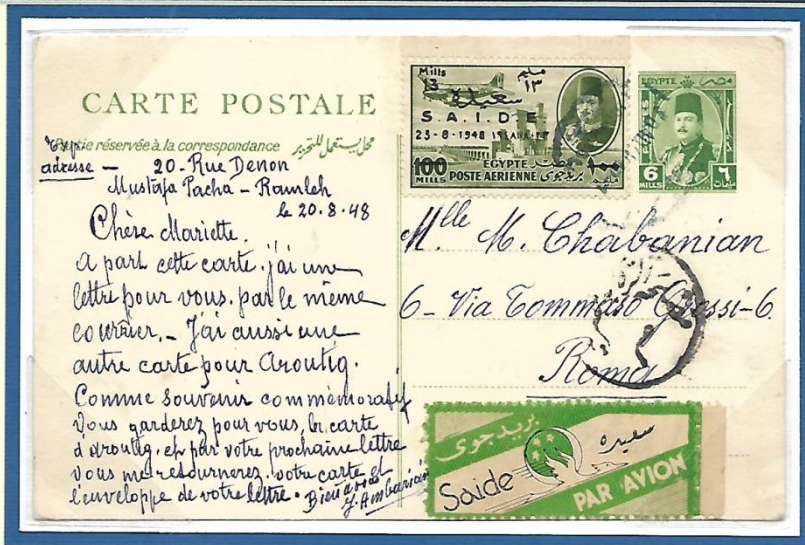 CARTE POSTALE
Partie réservée à la correspondance محل يستعمل للتحرير
adresse - 20 - Rue Denon
Mustafa Pacha - Ramleh
le 20.8.48
Chère Mariette.
A part cette carte j'ai une
lettre pour vous. par le même
courrier. - J'ai aussi une
autre carte pour Aroutig.
Comme souvenir commémoratif
Vous garderez pour vous, la carte
d'aroutig. et par votre prochaine lettre
vous me retournerez, votre carte et
l'enveloppe de votre lettre.
Bien à vous
J. Ambarian
Mills 13 مليم ١٣
سعيدة
S.A.I.D.E.
23-8-1948
EGYPTE مصر
100 MILLS POSTE AERIENNE بريد جوى ١٠٠
EGYPTE مصر
6 MILLS ٦ مليمات
Mlle M. Chabanian
6 - Via Tommaso Grossi - 6.
Roma
بريد جوى
سعيده
Saide
PAR AVION